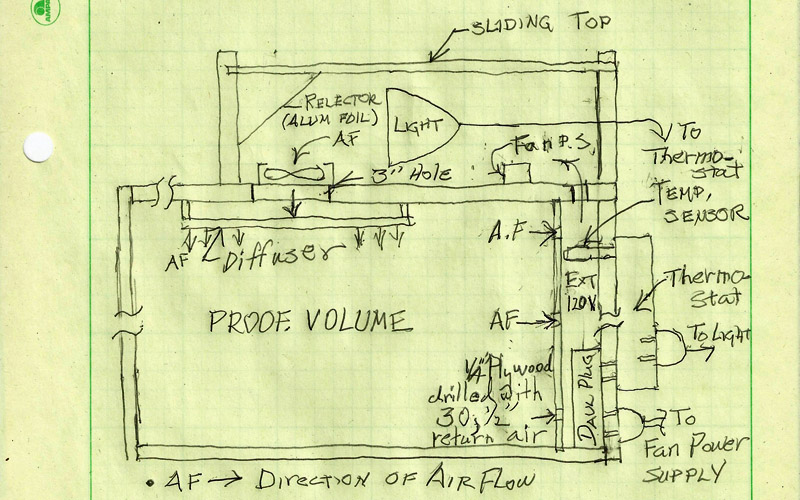 SLIDING TOP
RELECTOR
(ALUM FOIL)
AF
LIGHT
Fan P.S.
3" HOLE
To
Thermo-
stat
TEMP.
SENSOR
A.F
AF
Diffuser
EXT
120V
Thermo-
stat
PROOF VOLUME
AF
To LIGHT
1/4" Plywood
drilled with
30, 1/2"
return air
DAUL PLUG
To
Fan Power
SUPPLY
• AF → DIRECTION OF AIR FLOW